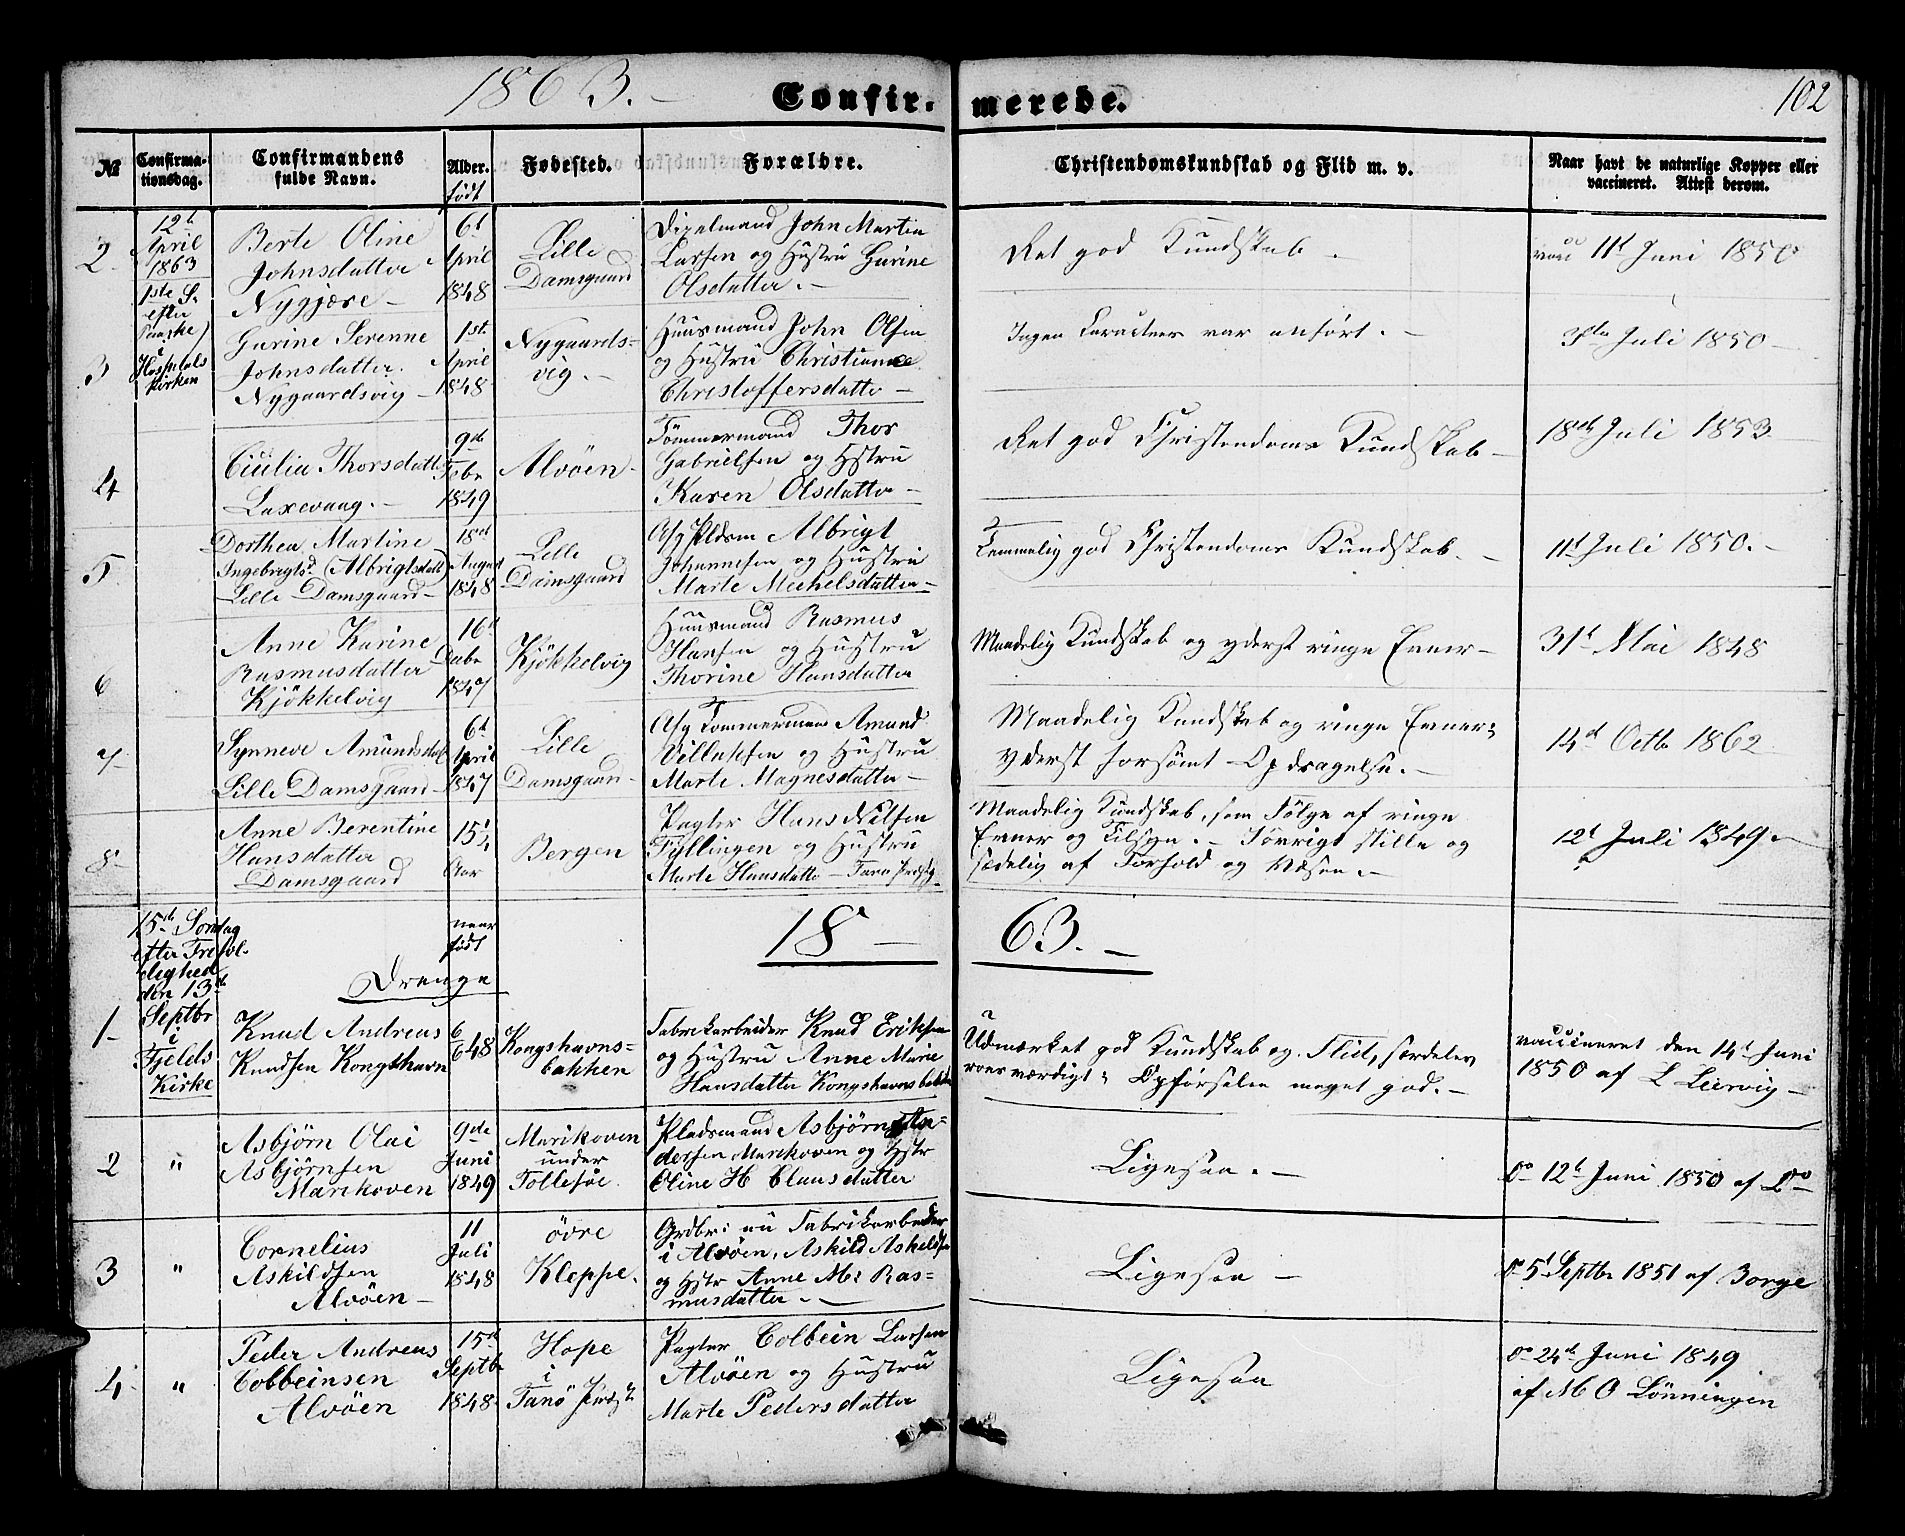 1863.-
Confir-
merede.
102
№
Confirma-
tionsdag.
Confirmandens
fulde Navn.
Alder.
født
Fødested.
Forældre.
Christendomskundskab og Flid m. v.
Naar havt de naturlige Kopper eller
vaccineret. Attest derom.
12t
April
1863
1ste S.
efter
Paaske
i
Hospitals
kirken
2.
Berte Oline
Johnsdatter
Nygjære -
6t
April
1848
Lille
Damsgaard
John Martin
Larsen og Hustru Gurine
Olsdatter. -
Ret god Kundskab -
vacc 11t Juni 1850
3
Gurine Serenne
Johnsdatter.
Nygaardsvig -
1st
April
1848
Nygaards-
vig. -
Huusmand John Olsen
og Hustru Christiane
Christoffersdatter -
Ingen Caracteer var anført. -
Juli 1850 -
4
Thorsdatter
Laxevaag. -
9de
Febr
1849
Alvøen -
Tömmermand Thor
Gabrielsen og Hstru
Karen Olsdatter -
Ret god Christendoms Kundskab -
18de Juli 1853
5
Dorthea Martine
Ingebrigtsd. (Albrigtsdatt)
Lille Damsgaard -
18de
August
1848
Lille
Damsgaard
Afg Pldsm Albrigt
Johannesen og Hustru
Marte Michelsdatter -
Temmelig god Christendoms Kundskab. -
11t Juli 1850. -
6
Anne Karine
Rasmusdatter
Kjökkelvig
16d
Decbr
1847
Kjökkelvig
Huusmand Rasmus
Hansen og Hustru
Thorine Hansdatter
Maadelig Kundskab og yderst ringe Evner -
31t Mai 1848
7
Synneve Amundsdatt
Lille Damsgaard -
6t
April
1847
Lille
Damsgaard -
Afg Tömmermand Amund
Villumsen og Hustru
Marte Magnesdatter -
Maadelig Kundskab og ringe Evner;
yderst forsömt Opdragelse. -
14d Octb 1862
8
Anne Berentine
Hansdatter
Damsgaard
15 1/4
Aar
Bergen
Pagter Hans Nilsen
Fyllingen og Hustru
Marte Hansdatter - Fanø Prdsg.
Maadelig Kundskab, som Fölge af ringe
Evner og Tilsyn. - Iövrigt stille og
sædelig af Forhold og Væsen. -
12t Juli 1849 -
18 -
63. -
15de Søndag
efter Trefol-
dighed
den 13de
Septbr
i
Fjelds
Kirke
naar
født
Drenge
1
Knud Andreas
Knudsen Kongshavn
6/6 48
Kongshavns-
bakken
Fabrikarbeider Knud Eriksen
og Hustru Anne Marie
Hansdatter Kongshavnsbakken
Udmærket god Kundskab og Flid, særdeles
roesværdigt; Opförselen meget god. -
vaccineret den 14d Juni
1850 af L Leervig -
2
"
Asbjørn Olai
Asbjørnsen
Marikoven
9de
Juni
1849
Marikoven
under
Tollesöe.
Pladsmand Asbjørn An-
dersen Marikoven og Hstr
Oline H Clausdatter
Ligesaa. -
Do 12t Juni 1850 af Do
3
"
Cornelius
Askildsen
Alvøen -
11
Juli
1848
øvre
Kleppe.
Grdbr: nu Fabrikarbeider
i Alvøen, Askild Askeldsen
og Hstr Anne M: Ras-
musdatter. -
Ligesaa -
Do 5t Septbr 1851 af Borge
4
"
Peder Andreas
Colbeinsen
Alvøen
15de
Septbr
1848
Hope
i
Fanö Prdsg.
Pagter Colbein Larsen
Alvøen og Hustru
Marte Pedersdatter
Ligesaa
Do 24de Juni 1849
af M O Lönningen